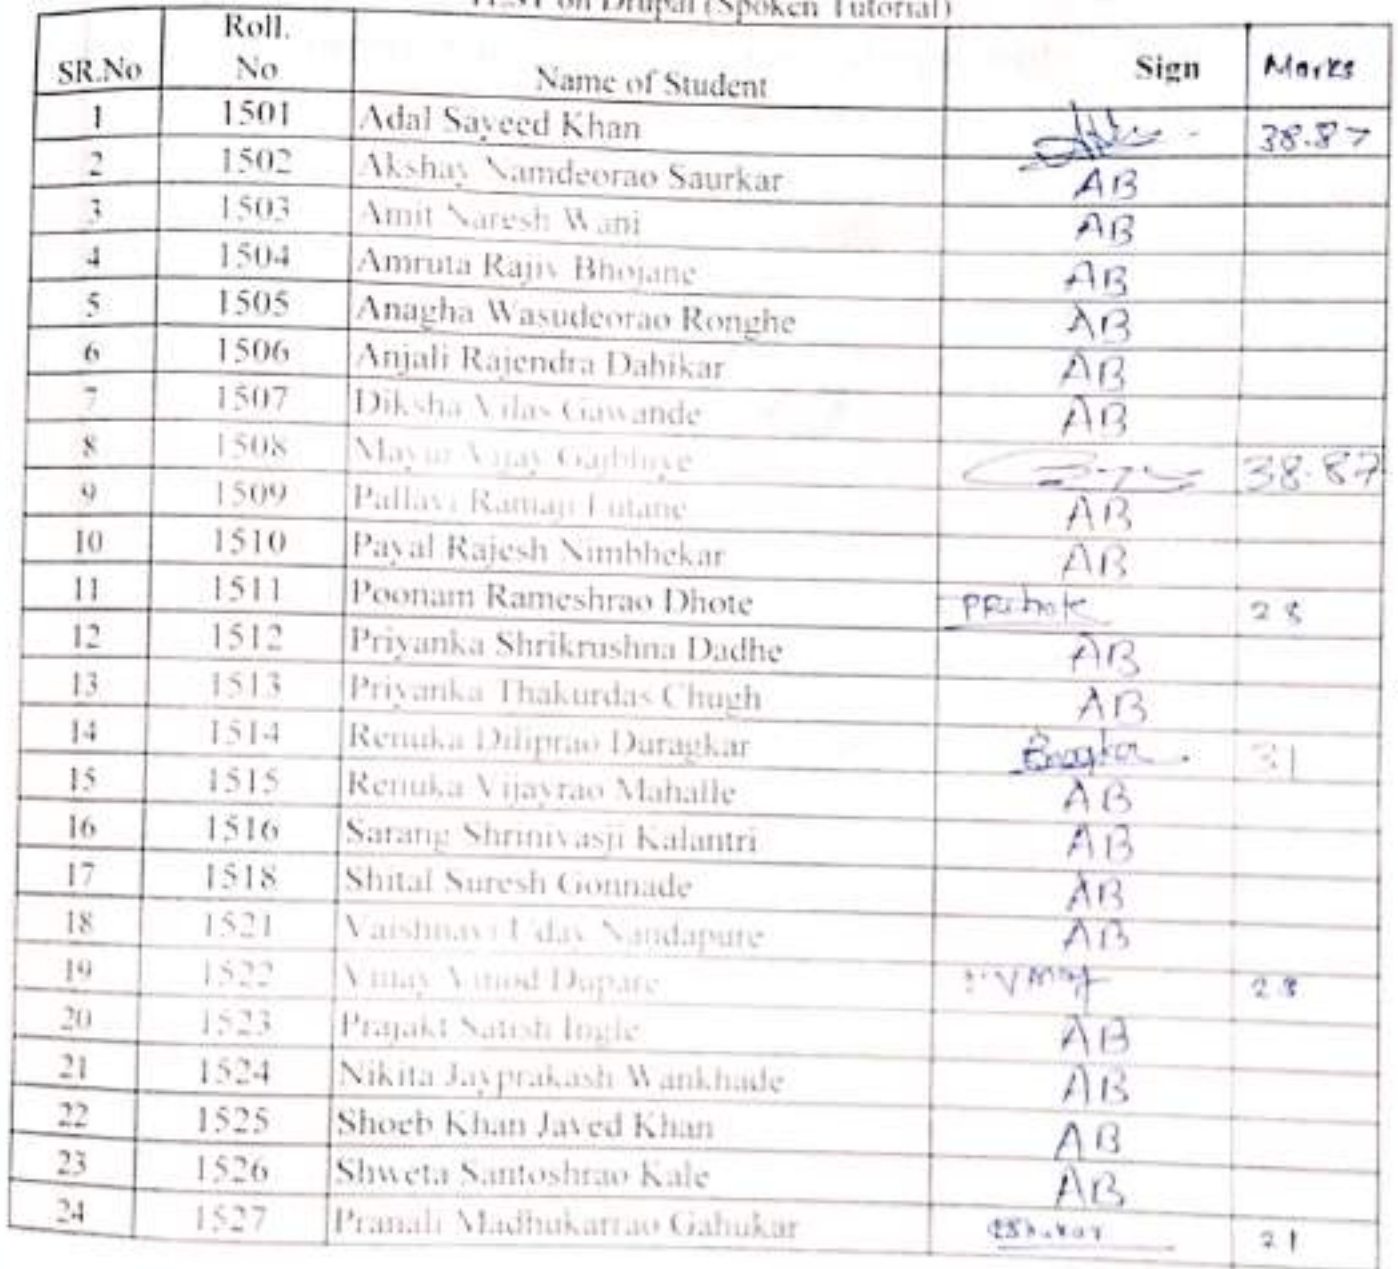 TEST on Drupal (Spoken Tutorial)
SR.No Roll. No Name of Student Sign Marks
1 1501 Adal Sayeed Khan 38.87
2 1502 Akshay Namdeorao Saurkar AB
3 1503 Amit Naresh Wani AB
4 1504 Amruta Rajiv Bhojane AB
5 1505 Anagha Wasudeorao Ronghe AB
6 1506 Anjali Rajendra Dahikar AB
7 1507 Diksha Vilas Gawande AB
8 1508 Mayur Vijay Gajbhiye 38.87
9 1509 Pallavi Ramaji Lutane AB
10 1510 Payal Rajesh Nimbhekar AB
11 1511 Poonam Rameshrao Dhote 28
12 1512 Priyanka Shrikrushna Dadhe AB
13 1513 Priyanka Thakurdas Chugh AB
14 1514 Renuka Diliprao Duragkar 31
15 1515 Renuka Vijayrao Mahalle AB
16 1516 Sarang Shrinivasji Kalantri AB
17 1518 Shital Suresh Gonnade AB
18 1521 Vaishnavi Uday Nandapure AB
19 1522 Vinay Vinod Dupare 28
20 1523 Prajakt Satish Ingle AB
21 1524 Nikita Jayprakash Wankhade AB
22 1525 Shoeb Khan Javed Khan AB
23 1526 Shweta Santoshrao Kale AB
24 1527 Pranali Madhukarrao Gahukar 21